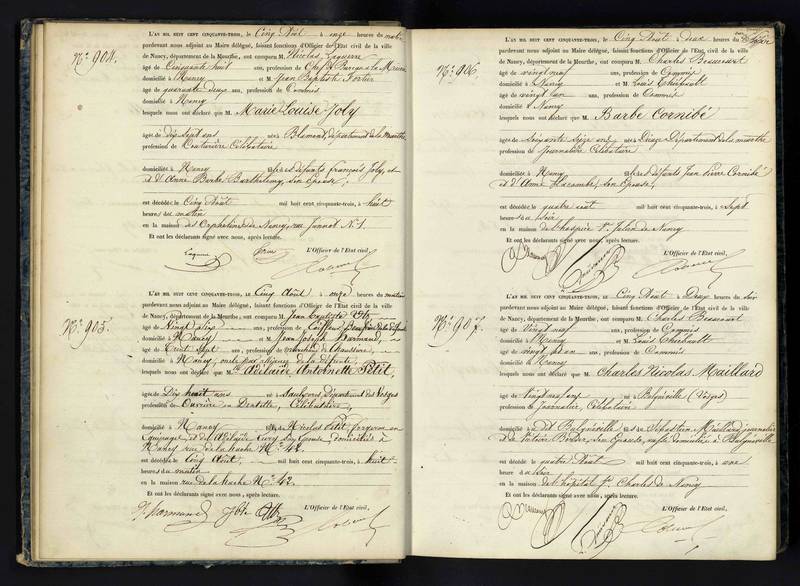 N.º 904.
L'AN MIL HUIT CENT CINQUANTE-TROIS, le Cinq Août à onze heures du matin
pardevant nous adjoint au Maire délégué, faisant fonctions d'Officier de l'Etat civil de la ville
de Nancy, département de la Meurthe, ont comparu M. Nicolas Laguerre
âgé de Cinquante huit ans, profession de Chef de Bureau à la Mairie
domicilié à Nancy et M. Jean Baptiste Fortier
âgé de quarante deux ans, profession de Commis
domicilié à Nancy
lesquels nous ont déclaré que M. Marie Louise Joly
âgée de dix sept ans née à Blamont, département de la Meurthe
profession de Couturière Célibataire
domiciliée à Nancy fille des défunts françois Joly, et
et d'Anne Barbe Barthélemy, son Epouse,
est décédée le Cinq Août mil huit cent cinquante-trois, à huit
heures du matin
en la maison des Orphelines de Nancy, rue N.º 1.
Et ont les déclarants signé avec nous, après lecture.
L'Officier de l'Etat civil,
N.º 905.
L'AN MIL HUIT CENT CINQUANTE-TROIS, le Cinq Août à onze heures du matin
pardevant nous adjoint au Maire délégué, faisant fonctions d'Officier de l'Etat civil de la ville
de Nancy, département de la Meurthe, ont comparu M. Jean Baptiste
âgé de Vingt six ans, profession de Coiffeur
domicilié à Nancy et M. Jean Joseph Harmand,
âgé de Trente sept ans, profession de marchand de Chaussures,
domicilié à Nancy, oncle par alliance de la défunte,
lesquels nous ont déclaré que M.lle Adélaïde Antoinette Petit,
âgée de Dix huit ans née à Saulxures, Département des Vosges
profession de Ouvrière en Dentelle, Célibataire,
domiciliée à Nancy fille de Nicolas Petit, forgeron en
équipage et de Adélaïde son Epouse domiciliés à
Nancy rue de la hache N.º 42.
est décédée le Cinq Août, mil huit cent cinquante-trois, à huit
heures du matin
en la maison rue de la hache N.º 42.
Et ont les déclarants signé avec nous, après lecture.
L'Officier de l'Etat civil,
N.º 906.
L'AN MIL HUIT CENT CINQUANTE-TROIS, le Cinq Août à deux heures du soir
pardevant nous adjoint au Maire délégué, faisant fonctions d'Officier de l'Etat civil de la ville
de Nancy, département de la Meurthe, ont comparu M. Charles Beaucourt
âgé de vingt neuf ans, profession de Commis
domicilié à Nancy et M. Louis Thiébault
âgé de vingt un ans, profession de Commis
domicilié à Nancy
lesquels nous ont déclaré que M. Barbe Cornibé
âgée de soixante seize ans née à Département de la Meurthe
profession de Journalière Célibataire
domiciliée à Nancy fille des défunts Jean Pierre Cornibé
et d'Anne Lacombe, son Epouse,
est décédée le quatre août mil huit cent cinquante-trois, à Sept
heures du soir
en la maison de l'hospice St. Julien de Nancy
Et ont les déclarants signé avec nous, après lecture.
L'Officier de l'Etat civil,
N.º 907.
L'AN MIL HUIT CENT CINQUANTE-TROIS, le Cinq Août à Deux heures du soir
pardevant nous adjoint au Maire délégué, faisant fonctions d'Officier de l'Etat civil de la ville
de Nancy, département de la Meurthe, ont comparu M. Charles Beaucourt
âgé de Vingt neuf ans, profession de Commis
domicilié à Nancy et M. Louis Thiébault
âgé de vingt un ans, profession de Commis
domicilié à Nancy
lesquels nous ont déclaré que M. Charles Nicolas Maillard
âgé de Vingt ans né à Bulgnéville (Vosges)
profession de Journalier, Célibataire
domicilié à dit Bulgnéville fils de Sébastien Maillard, journalier
et de son Epouse, domiciliés à Bulgnéville
est décédé le quatre Août mil huit cent cinquante-trois, à une
heure du soir
en la maison de l'hôpital St. Charles de Nancy
Et ont les déclarants signé avec nous, après lecture.
L'Officier de l'Etat civil,